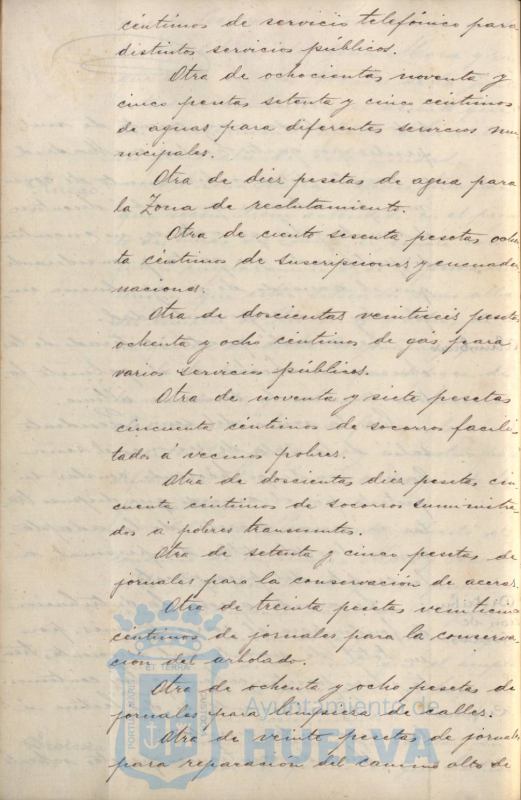 céntimos de servicio telefónico para
distintos servicios públicos.
Otra de ochocientas noventa y
cinco pesetas setenta y cinco céntimos
de aguas para diferentes servicios mu
nicipales.
Otra de diez pesetas de agua para
la Zona de reclutamiento.
Otra de ciento sesenta pesetas ochen
ta céntimos de suscripciones y encuader
naciones.
Otra de doscientas veintiseis pesetas
ochenta y ocho céntimos de gas para
varios servicios públicos.
Otra de noventa y siete pesetas
cincuenta céntimos de socorros facili
tados á vecinos pobres.
Otra de doscientas diez pesetas cin
cuenta céntimos de socorros suministra
dos á pobres transeuntes.
Otra de setenta y cinco pesetas de
jornales para la conservación de aceras.
Otra de treinta pesetas veinticinco
céntimos de jornales para la conserva
ción del arbolado.
Otra de ochenta y ocho pesetas de
jornales para limpieza de calles.
Otra de veinte pesetas de jornales
para reparación del camino alto de
Ayuntamiento de
HUELVA
PORTUS MARIS ET TERRAE CUSTODIA